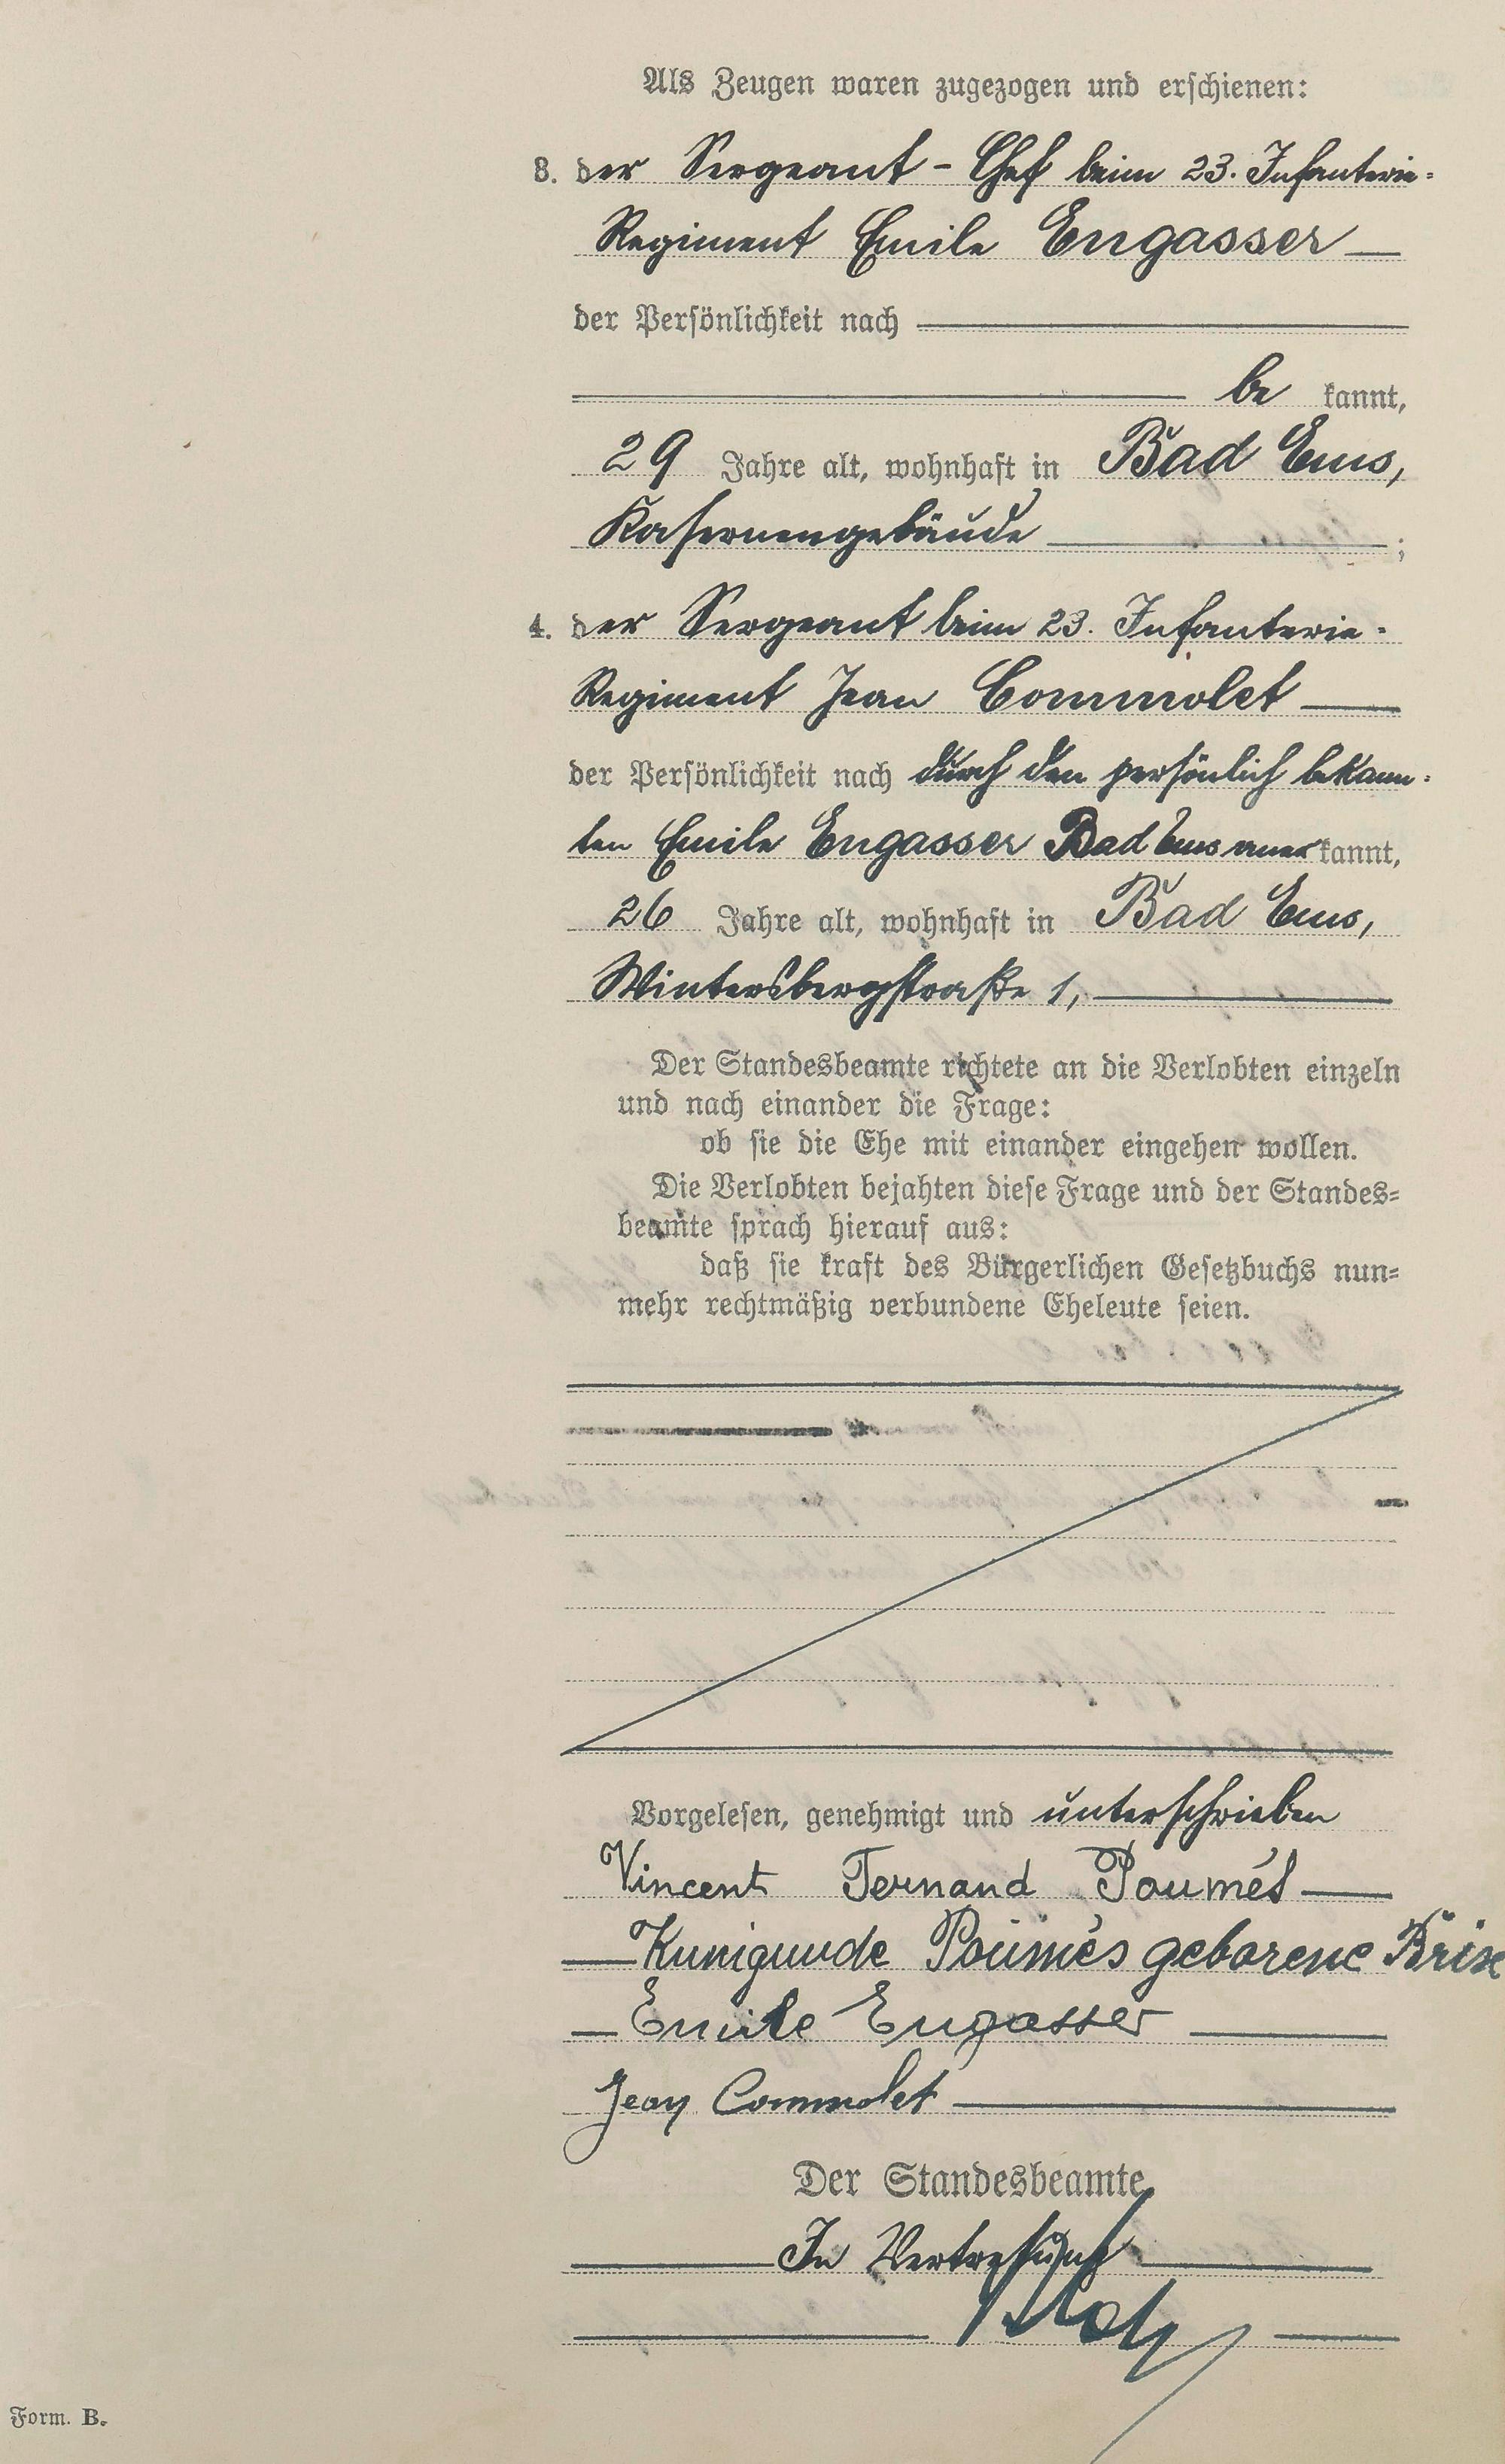 Als Zeugen waren zugezogen und erschienen:
3. der Sergeant - Chef beim 23. Infanterie-
Regiment Emile Engasser
der Persönlichkeit nach
be kannt,
29 Jahre alt, wohnhaft in Bad Ems,
Kasernengebäude ;
4. der Sergeant beim 23. Infanterie-
Regiment Jean Commolet
der Persönlichkeit nach durch den persönlich bekann-
ten Emile Engasser Bad Ems anerkannt,
26 Jahre alt, wohnhaft in Bad Ems,
Wintersbergstraße 1,
Der Standesbeamte richtete an die Verlobten einzeln
und nach einander die Frage:
ob sie die Ehe mit einander eingehen wollen.
Die Verlobten bejahten diese Frage und der Standes-
beamte sprach hierauf aus:
daß sie kraft des Bürgerlichen Gesetzbuchs nun-
mehr rechtmäßig verbundene Eheleute seien.
Vorgelesen, genehmigt und unterschrieben
Vincent Fernand Poumés
Kunigunde Poumés geborene Brix
Emile Engasser
Jean Commolet
Der Standesbeamte
In Vertretung
Form. B.